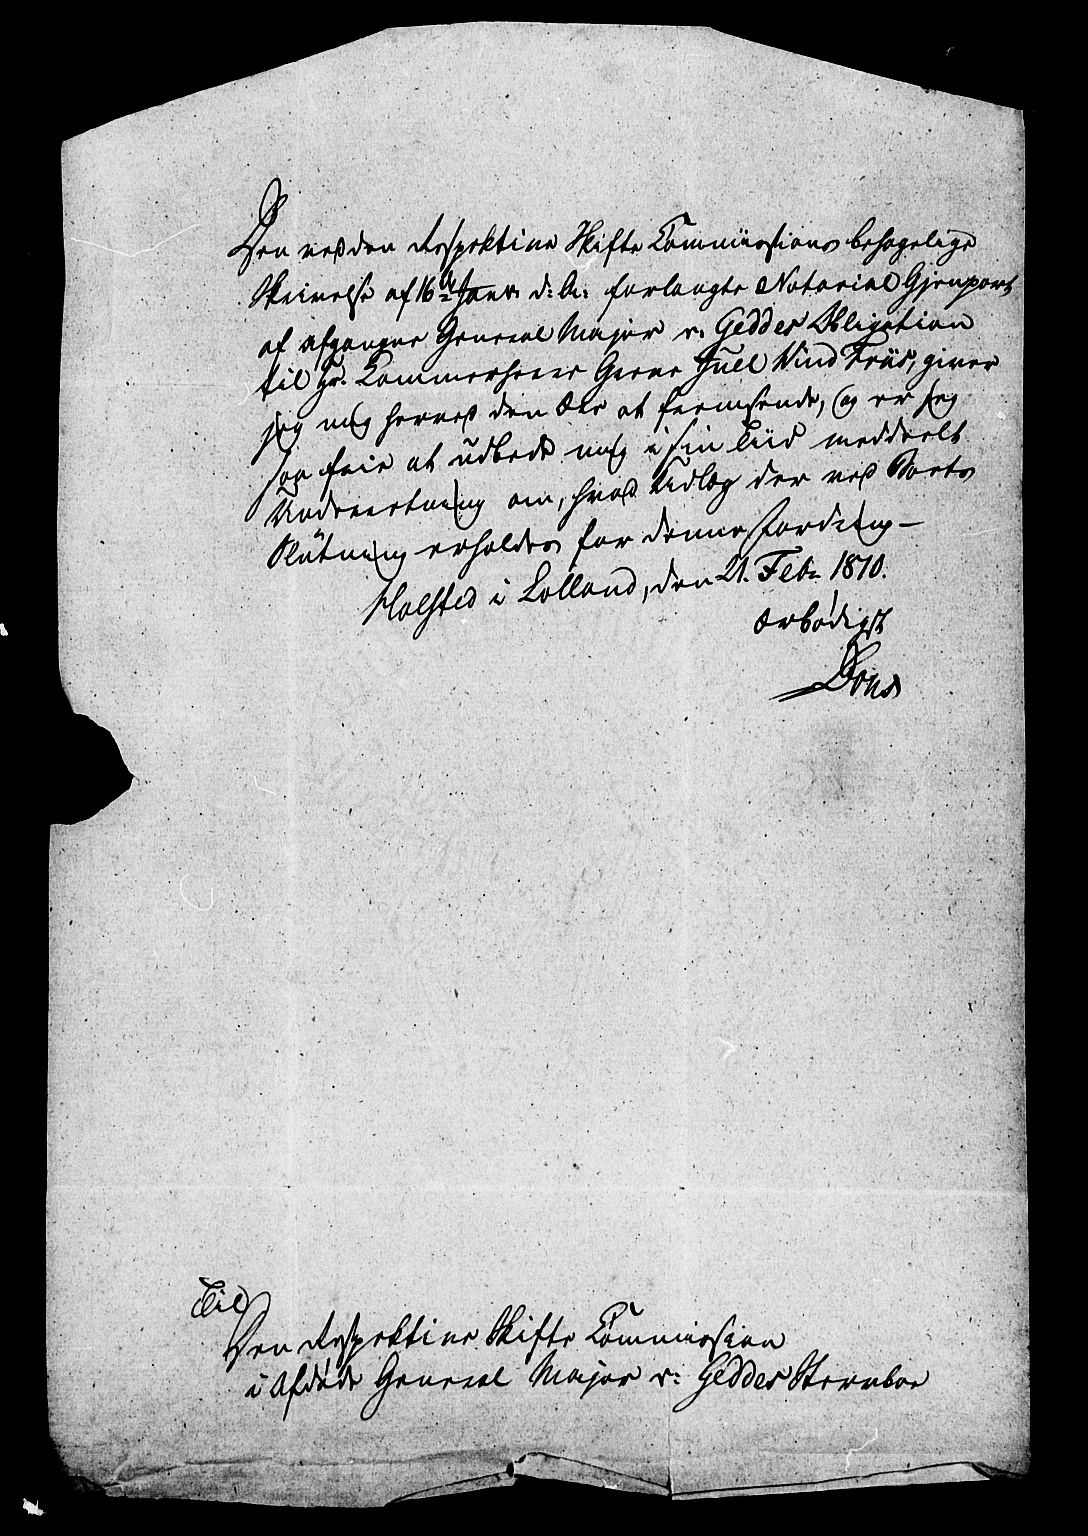 Den ved den Respektive Skifte Commissions behagelige
Skrivelse af 16de Janr. d: A: forlangte Notarial Gjenpart
af afgangne General Major v: Geddes Obligation
til Hr. Kammerherre Greve Juel Wind Friis, giver
jeg mig herved den Ære at fremsende, og er jeg
saa frie at udbede mig i sin Tiid meddeelt
Underretning om, hvad Udlæg der ved Boets
Slutning erholdes for denne Fordring —
Halsted i Lolland, den 21. Feb. 1810.
Ærbødigst
Dons
Til
Den Respektive Skifte Commission
i Afdøde General Major v: Geddes Sterboe